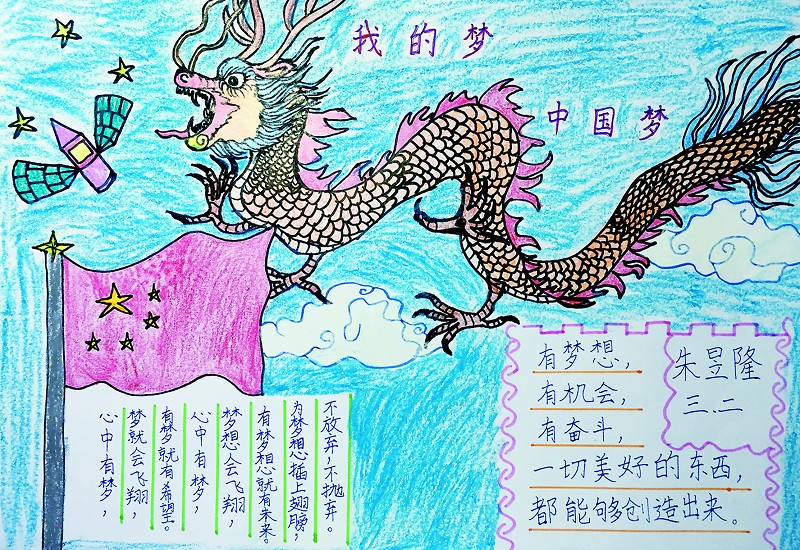 我的梦
中国梦
心中有梦，
梦就会飞翔，
有梦就有希望。
心中有梦，
梦想会飞翔，
有梦想就有未来。
为梦想插上翅膀，
不放弃，不抛弃。
有梦想，
有机会，
有奋斗，
一切美好的东西，
都能够创造出来。
朱昱隆
三.二